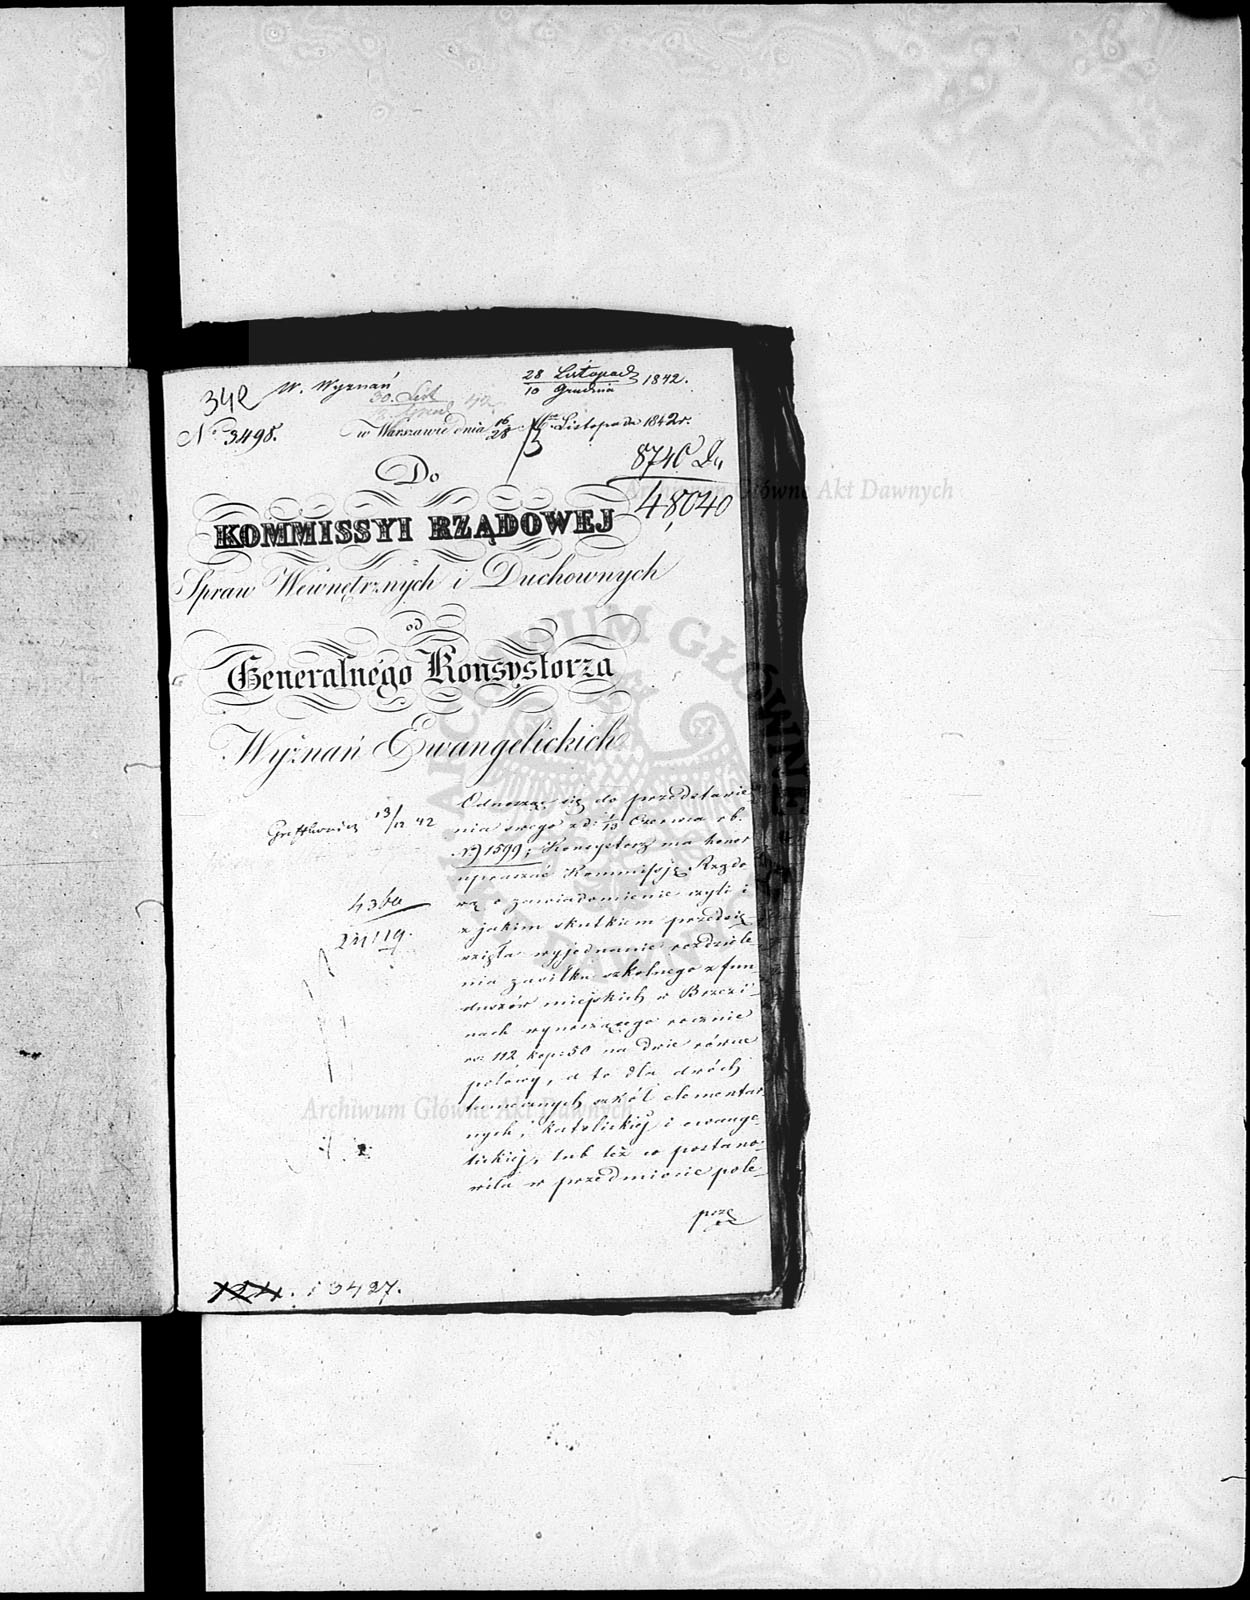 342 W. Wyznań 28 Listopad 1842.
10 Grudnia
30. List
42
No 3498. w Warszawie dnia 16/28 Listopada 1842 r.
8740
48040
Do
KOMMISSYI RZĄDOWEJ
Spraw Wewnętrznych i Duchownych
od
Generalnego Konsystorza
Wyznań Ewangelickich
13/12 42
2411g.
Odnosząc się do przedstawie-
nia swego z d: 1/13 Czerwca r b.
No 1599; Konsystorz ma honor
upraszać Kommissję Rządo
wą o zawiadomienie czyli i
z jakim skutkiem przedsię-
wzięła wyjednanie rozdziele-
nia zasiłku szkolnego z fun-
duszów miejskich w Brzezi-
nach wynoszącego rocznie
rs: 112 kop: 50 na dwie równe
połowy, a to dla dwóch
tamecznych szkół elementar-
nych, katolickiej i ewange-
lickiej, lub też co postano-
wiła w przedmiocie pole-
13427.
Archiwum Główne Akt Dawnych
Archiwum Główne Akt Dawnych
ARCHIWUM GŁÓWNE AKT DAWNYCH